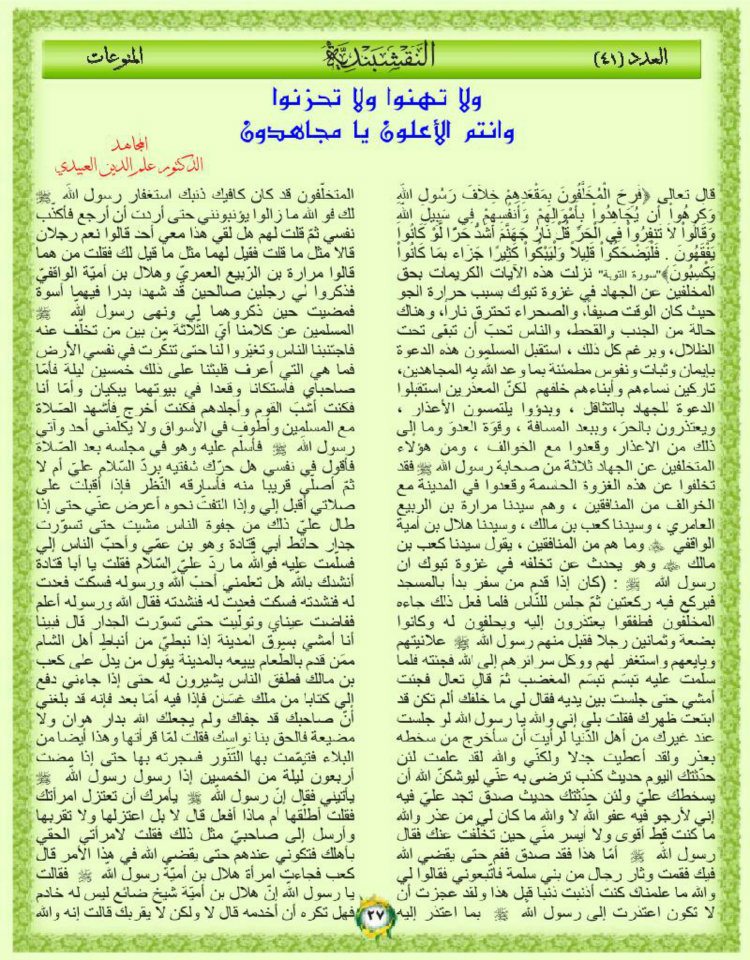 العدد (٤١)
النقشبندية
المنوعات
ولا تهنوا ولا تحزنوا
وانتم الأعلون يا مجاهدون
المجاهد
الدكتور علم الدين العبيدي
قال تعالى ﴿فَرِحَ الْمُخَلَّفُونَ بِمَقْعَدِهِمْ خِلاَفَ رَسُولِ اللّهِ
وَكَرِهُواْ أَن يُجَاهِدُواْ بِأَمْوَالِهِمْ وَأَنفُسِهِمْ فِي سَبِيلِ اللّهِ
وَقَالُواْ لاَ تَنفِرُواْ فِي الْحَرِّ قُلْ نَارُ جَهَنَّمَ أَشَدُّ حَرًّا لَّوْ كَانُوا
يَفْقَهُونَ . فَلْيَضْحَكُواْ قَلِيلاً وَلْيَبْكُواْ كَثِيرًا جَزَاء بِمَا كَانُواْ
يَكْسِبُونَ﴾"سورة التوبة" نزلت هذه الآيات الكريمات بحق
المخلفين عن الجهاد في غزوة تبوك بسبب حرارة الجو
حيث كان الوقت صيفاً، والصحراء تحترق ناراً، وهناك
حالة من الجدب والقحط، والناس تحبّ أن تبقى تحت
الظلال، وبرغم كلّ ذلك ، استقبل المسلمون هذه الدعوة
بإيمان وثبات ونفوس مطمئنة بما وعد الله به المجاهدين،
تاركين نساءهم وأبناءهم خلفهم لكنّ المعذرين استقبلوا
الدعوة للجهاد بالتثاقل ، وبدؤوا يلتمسون الأعذار ،
ويعتذرون بالحرّ، وببعد المسافة ، وقوّة العدو وما إلى
ذلك من الاعذار وقعدوا مع الخوالف ، ومن هؤلاء
المتخلفين عن الجهاد ثلاثة من صحابة رسول الله ﷺ فقد
تخلفوا عن هذه الغزوة الحسمة وقعدوا في المدينة مع
الخوالف من المنافقين ، وهم سيدنا مرارة بن الربيع
العامري ، وسيدنا كعب بن مالك ، وسيدنا هلال بن أمية
الواقفي وما هم من المنافقين ، يقول سيدنا كعب بن
مالك وهو يحدث عن تخلفه في غزوة تبوك ان
رسول الله ﷺ : (كان إذا قدم من سفر بدأ بالمسجد
فيركع فيه ركعتين ثمّ جلس للنّاس فلما فعل ذلك جاءه
المخلّفون فطفقوا يعتذرون إليه ويحلفون له وكانوا
بضعة وثمانين رجلا فقبل منهم رسول الله ﷺ علانيتهم
وبايعهم واستغفر لهم ووكل سرائرهم إلى الله فجئته فلما
سلمت عليه تبسّم تبسّم المغضب ثمّ قال تعال فجئت
أمشي حتى جلست بين يديه فقال لي ما خلفك ألم تكن قد
ابتعت ظهرك فقلت بلى إني والله يا رسول الله لو جلست
عند غيرك من أهل الدّنيا لرأيت أن سأخرج من سخطه
بعذر ولقد أعطيت جدلا ولكنّي والله لقد علمت لئن
حدّثتك اليوم حديث كذب ترضى به عنّي ليوشكنّ الله أن
يسخطك عليّ ولئن حدّثتك حديث صدق تجد عليّ فيه
إني لأرجو فيه عفو الله لا والله ما كان لي من عذر والله
ما كنت قط أقوى ولا أيسر منّي حين تخلّفت عنك فقال
رسول الله ﷺ أمّا هذا فقد صدق فقم حتى يقضي الله
فيك فقمت وثار رجال من بني سلمة فأتبعوني فقالوا لي
والله ما علمناك كنت أذنبت ذنبا قبل هذا ولقد عجزت أن
لا تكون اعتذرت إلى رسول الله ﷺ بما اعتذر إليه
المتخلّفون قد كان كافيك ذنبك استغفار رسول الله ﷺ
لك فو الله ما زالوا يؤنبونني حتى أردت أن أرجع فأكذّب
نفسي ثمّ قلت لهم هل لقي هذا معي أحد قالوا نعم رجلان
قالا مثل ما قلت فقيل لهما مثل ما قيل لك فقلت من هما
قالوا مرارة بن الرّبيع العمريّ وهلال بن أميّة الواقفيّ
فذكروا لي رجلين صالحين قد شهدا بدرا فيهما أسوة
فمضيت حين ذكروهما لي ونهى رسول الله ﷺ
المسلمين عن كلامنا أي الثّلاثة من بين من تخلّف عنه
فاجتنبنا الناس وتغيّروا لنا حتى تنكّرت في نفسي الأرض
فما هي التي أعرف فلبثنا على ذلك خمسين ليلة فأمّا
صاحباي فاستكانا وقعدا في بيوتهما يبكيان وأمّا أنا
فكنت أشبّ القوم وأجلدهم فكنت أخرج فأشهد الصّلاة
مع المسلمين وأطوف في الأسواق ولا يكلّمني أحد وآتي
رسول الله ﷺ فأسلّم عليه وهو في مجلسه بعد الصّلاة
فأقول في نفسي هل حرّك شفتيه بردّ السّلام عليّ أم لا
ثمّ أصلّي قريبا منه فأسارقه النّظر فإذا أقبلت على
صلاتي أقبل إلي وإذا التفتّ نحوه أعرض عني حتى إذا
طال عليّ ذلك من جفوة الناس مشيت حتى تسوّرت
جدار حائط أبي قتادة وهو بن عمّي وأحبّ الناس إلي
فسلّمت عليه فوالله ما ردّ عليّ السّلام فقلت يا أبا قتادة
أنشدك بالله هل تعلمني أحبّ الله ورسوله فسكت فعدت
له فنشدته فسكت فعدت له فنشدته فقال الله ورسوله أعلم
ففاضت عيناي وتولّيت حتى تسوّرت الجدار قال فبينا
أنا أمشي بسوق المدينة إذا نبطيّ من أنباط أهل الشام
ممّن قدم بالطّعام يبيعه بالمدينة يقول من يدل على كعب
بن مالك فطفق الناس يشيرون له حتى إذا جاءني دفع
إلي كتابا من ملك غسّان فإذا فيه أمّا بعد فإنه قد بلغني
أنّ صاحبك قد جفاك ولم يجعلك الله بدار هوان ولا
مضيعة فالحق بنا نواسك فقلت لمّا قرأتها وهذا أيضا من
البلاء فتيمّمت بها التّنّور فسجرته بها حتى إذا مضت
أربعون ليلة من الخمسين إذا رسول رسول الله ﷺ
يأتيني فقال إنّ رسول الله ﷺ يأمرك أن تعتزل امرأتك
فقلت أطلّقها أم ماذا أفعل قال لا بل اعتزلها ولا تقربها
وأرسل إلى صاحبيّ مثل ذلك فقلت لامرأتي الحقي
بأهلك فتكوني عندهم حتى يقضي الله في هذا الأمر قال
كعب فجاءت امرأة هلال بن أميّة رسول الله ﷺ فقالت
يا رسول الله إنّ هلال بن أميّة شيخ ضائع ليس له خادم
فهل تكره أن أخدمه قال لا ولكن لا يقربك قالت إنه والله
٢٧